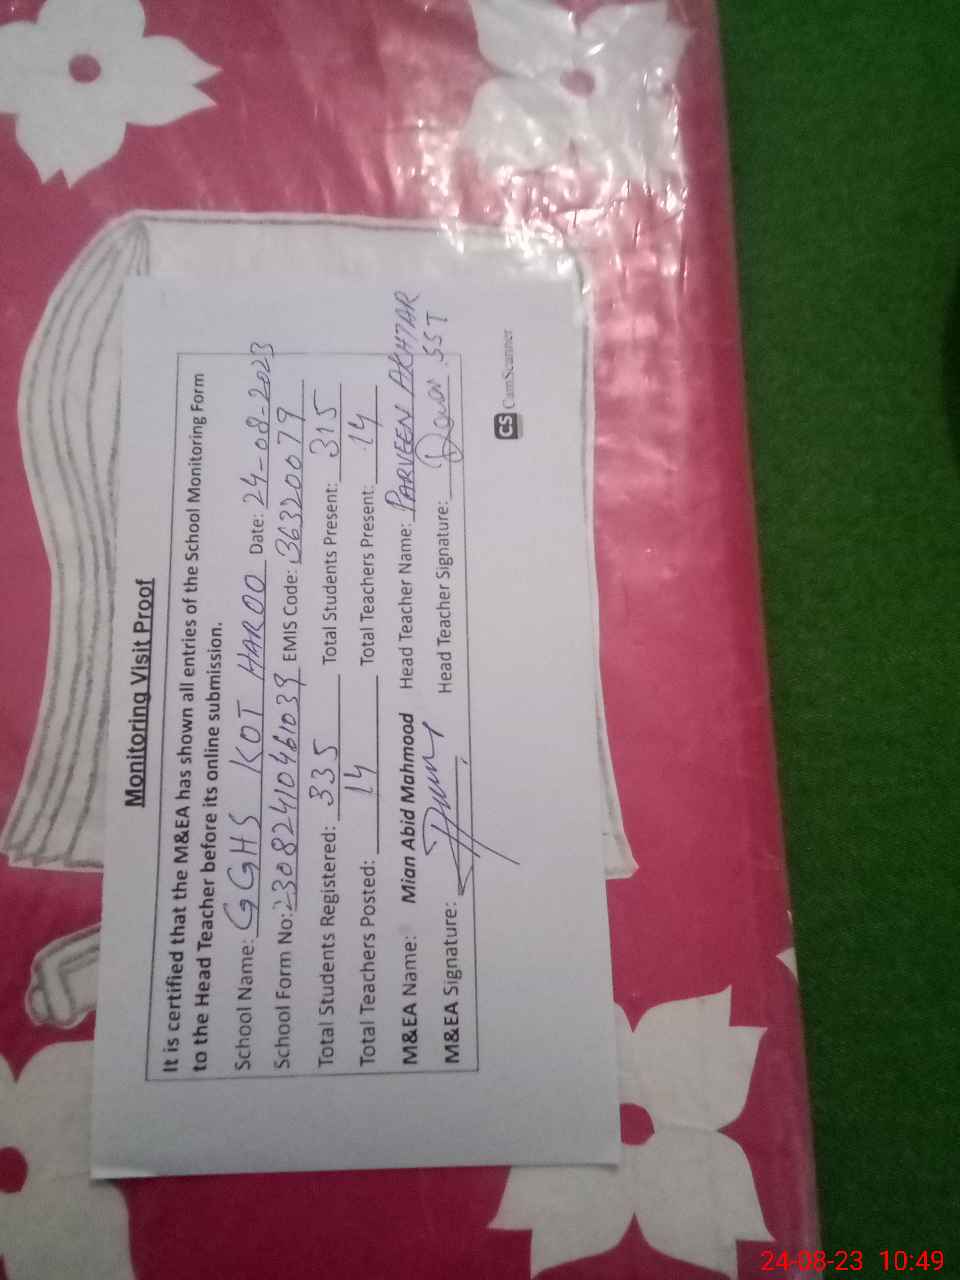 Monitoring Visit Proof
It is certified that the M&EA has shown all entries of the School Monitoring Form
to the Head Teacher before its online submission.
School Name: GGHS KOT HAROO Date: 24-08-2023
School Form No: 23082410461039 EMIS Code: 36320079
Total Students Registered: 335 Total Students Present: 315
Total Teachers Posted: 14 Total Teachers Present: 14
M&EA Name: Mian Abid Mahmood Head Teacher Name: PARVEEN AKHTAR
M&EA Signature: Head Teacher Signature: SST
CS CamScanner
24-08-23 10:49